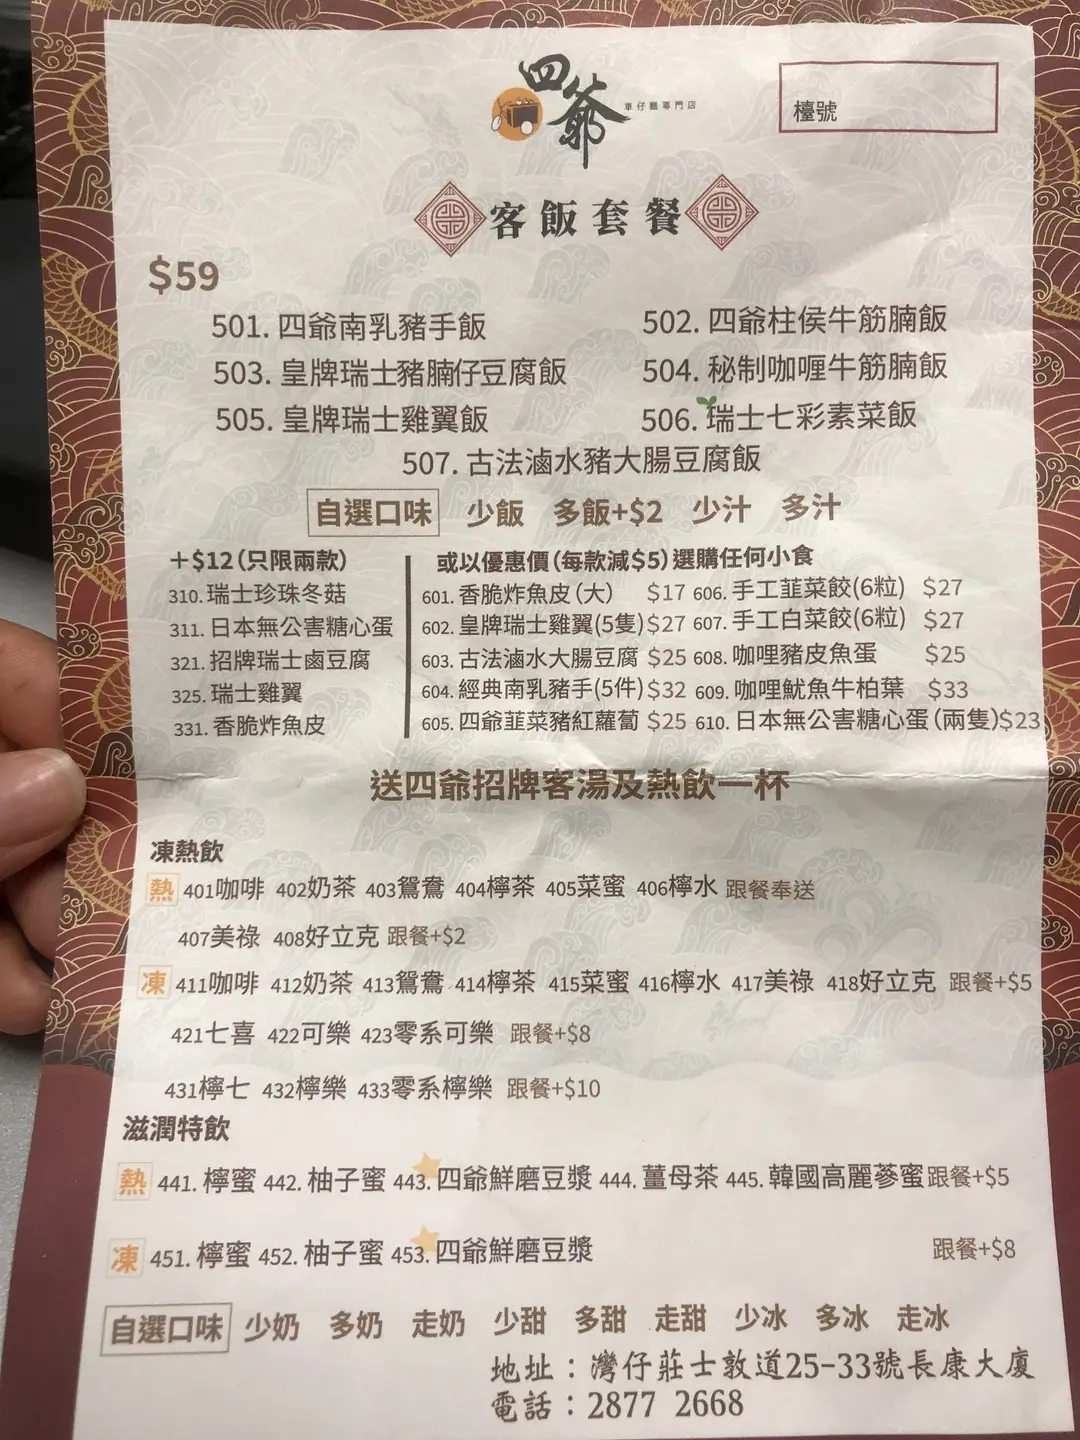 四爺 車仔麵專門店
檯號
客飯套餐
$59
501. 四爺南乳豬手飯 502. 四爺柱侯牛筋腩飯
503. 皇牌瑞士豬腩仔豆腐飯 504. 秘制咖喱牛筋腩飯
505. 皇牌瑞士雞翼飯 506. 瑞士七彩素菜飯
507. 古法滷水豬大腸豆腐飯
自選口味 少飯 多飯+$2 少汁 多汁
+$12(只限兩款) 或以優惠價(每款減$5)選購任何小食
310. 瑞士珍珠冬菇 601. 香脆炸魚皮(大) $17 606. 手工韮菜餃(6粒) $27
311. 日本無公害糖心蛋 602. 皇牌瑞士雞翼(5隻) $27 607. 手工白菜餃(6粒) $27
321. 招牌瑞士鹵豆腐 603. 古法滷水大腸豆腐 $25 608. 咖哩豬皮魚蛋 $25
325. 瑞士雞翼 604. 經典南乳豬手(5件) $32 609. 咖哩魷魚牛柏葉 $33
331. 香脆炸魚皮 605. 四爺韮菜豬紅蘿蔔 $25 610. 日本無公害糖心蛋(兩隻)$23
送四爺招牌客湯及熱飲一杯
凍熱飲
熱 401咖啡 402奶茶 403鴛鴦 404檸茶 405菜蜜 406檸水 跟餐奉送
407美祿 408好立克 跟餐+$2
凍 411咖啡 412奶茶 413鴛鴦 414檸茶 415菜蜜 416檸水 417美祿 418好立克 跟餐+$5
421七喜 422可樂 423零系可樂 跟餐+$8
431檸七 432檸樂 433零系檸樂 跟餐+$10
滋潤特飲
熱 441. 檸蜜 442. 柚子蜜 443. 四爺鮮磨豆漿 444. 薑母茶 445. 韓國高麗蔘蜜 跟餐+$5
凍 451. 檸蜜 452. 柚子蜜 453. 四爺鮮磨豆漿 跟餐+$8
自選口味 少奶 多奶 走奶 少甜 多甜 走甜 少冰 多冰 走冰
地址：灣仔莊士敦道25-33號長康大廈
電話：2877 2668